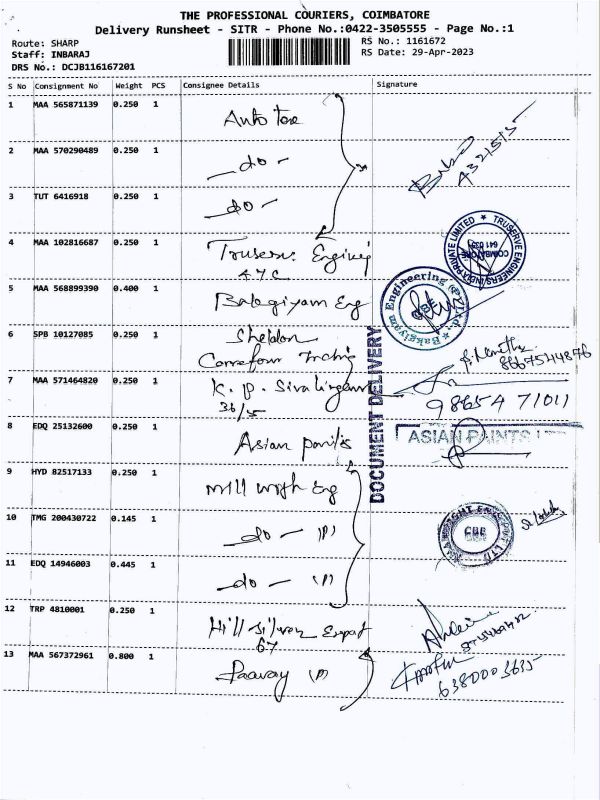 THE PROFESSIONAL COURIERS, COIMBATORE
Delivery Runsheet - SITR - Phone No.:0422-3505555 - Page No.:1
Route: SHARP
RS No.: 1161672
Staff: INBARAJ
RS Date: 29-Apr-2023
DRS No.: DCJB116167201
S No Consignment No Weight PCS Consignee Details Signature
1 MAA 565871139 0.250 1
Auto tex
2 MAA 570290489 0.250 1
- do -
3 TUT 6416918 0.250 1
- do -
4 MAA 102816687 0.250 1
TRUSERVE ENGINEERS INDIA PRIVATE LIMITED
COIMBATORE
5 MAA 568899390 0.400 1
Balagiyam Eng
Bakgiyam Engineering (P) Ltd.
CBE
6 SPB 10127085 0.250 1
8667544876
7 MAA 571464820 0.250 1
K. P. Sivalingam
36/5
98654 71011
DOCUMENT DELIVERY
8 EDQ 25132600 0.250 1
Asian paints
ASIAN PAINTS LTD
9 HYD 82517133 0.250 1
Mill wright Eng
10 TMG 200430722 0.145 1
- do - (P)
CBE
11 EDQ 14946003 0.445 1
- do - (P)
12 TRP 4810001 0.250 1
67
13 MAA 567372961 0.800 1
Paavay (P)
6380003635